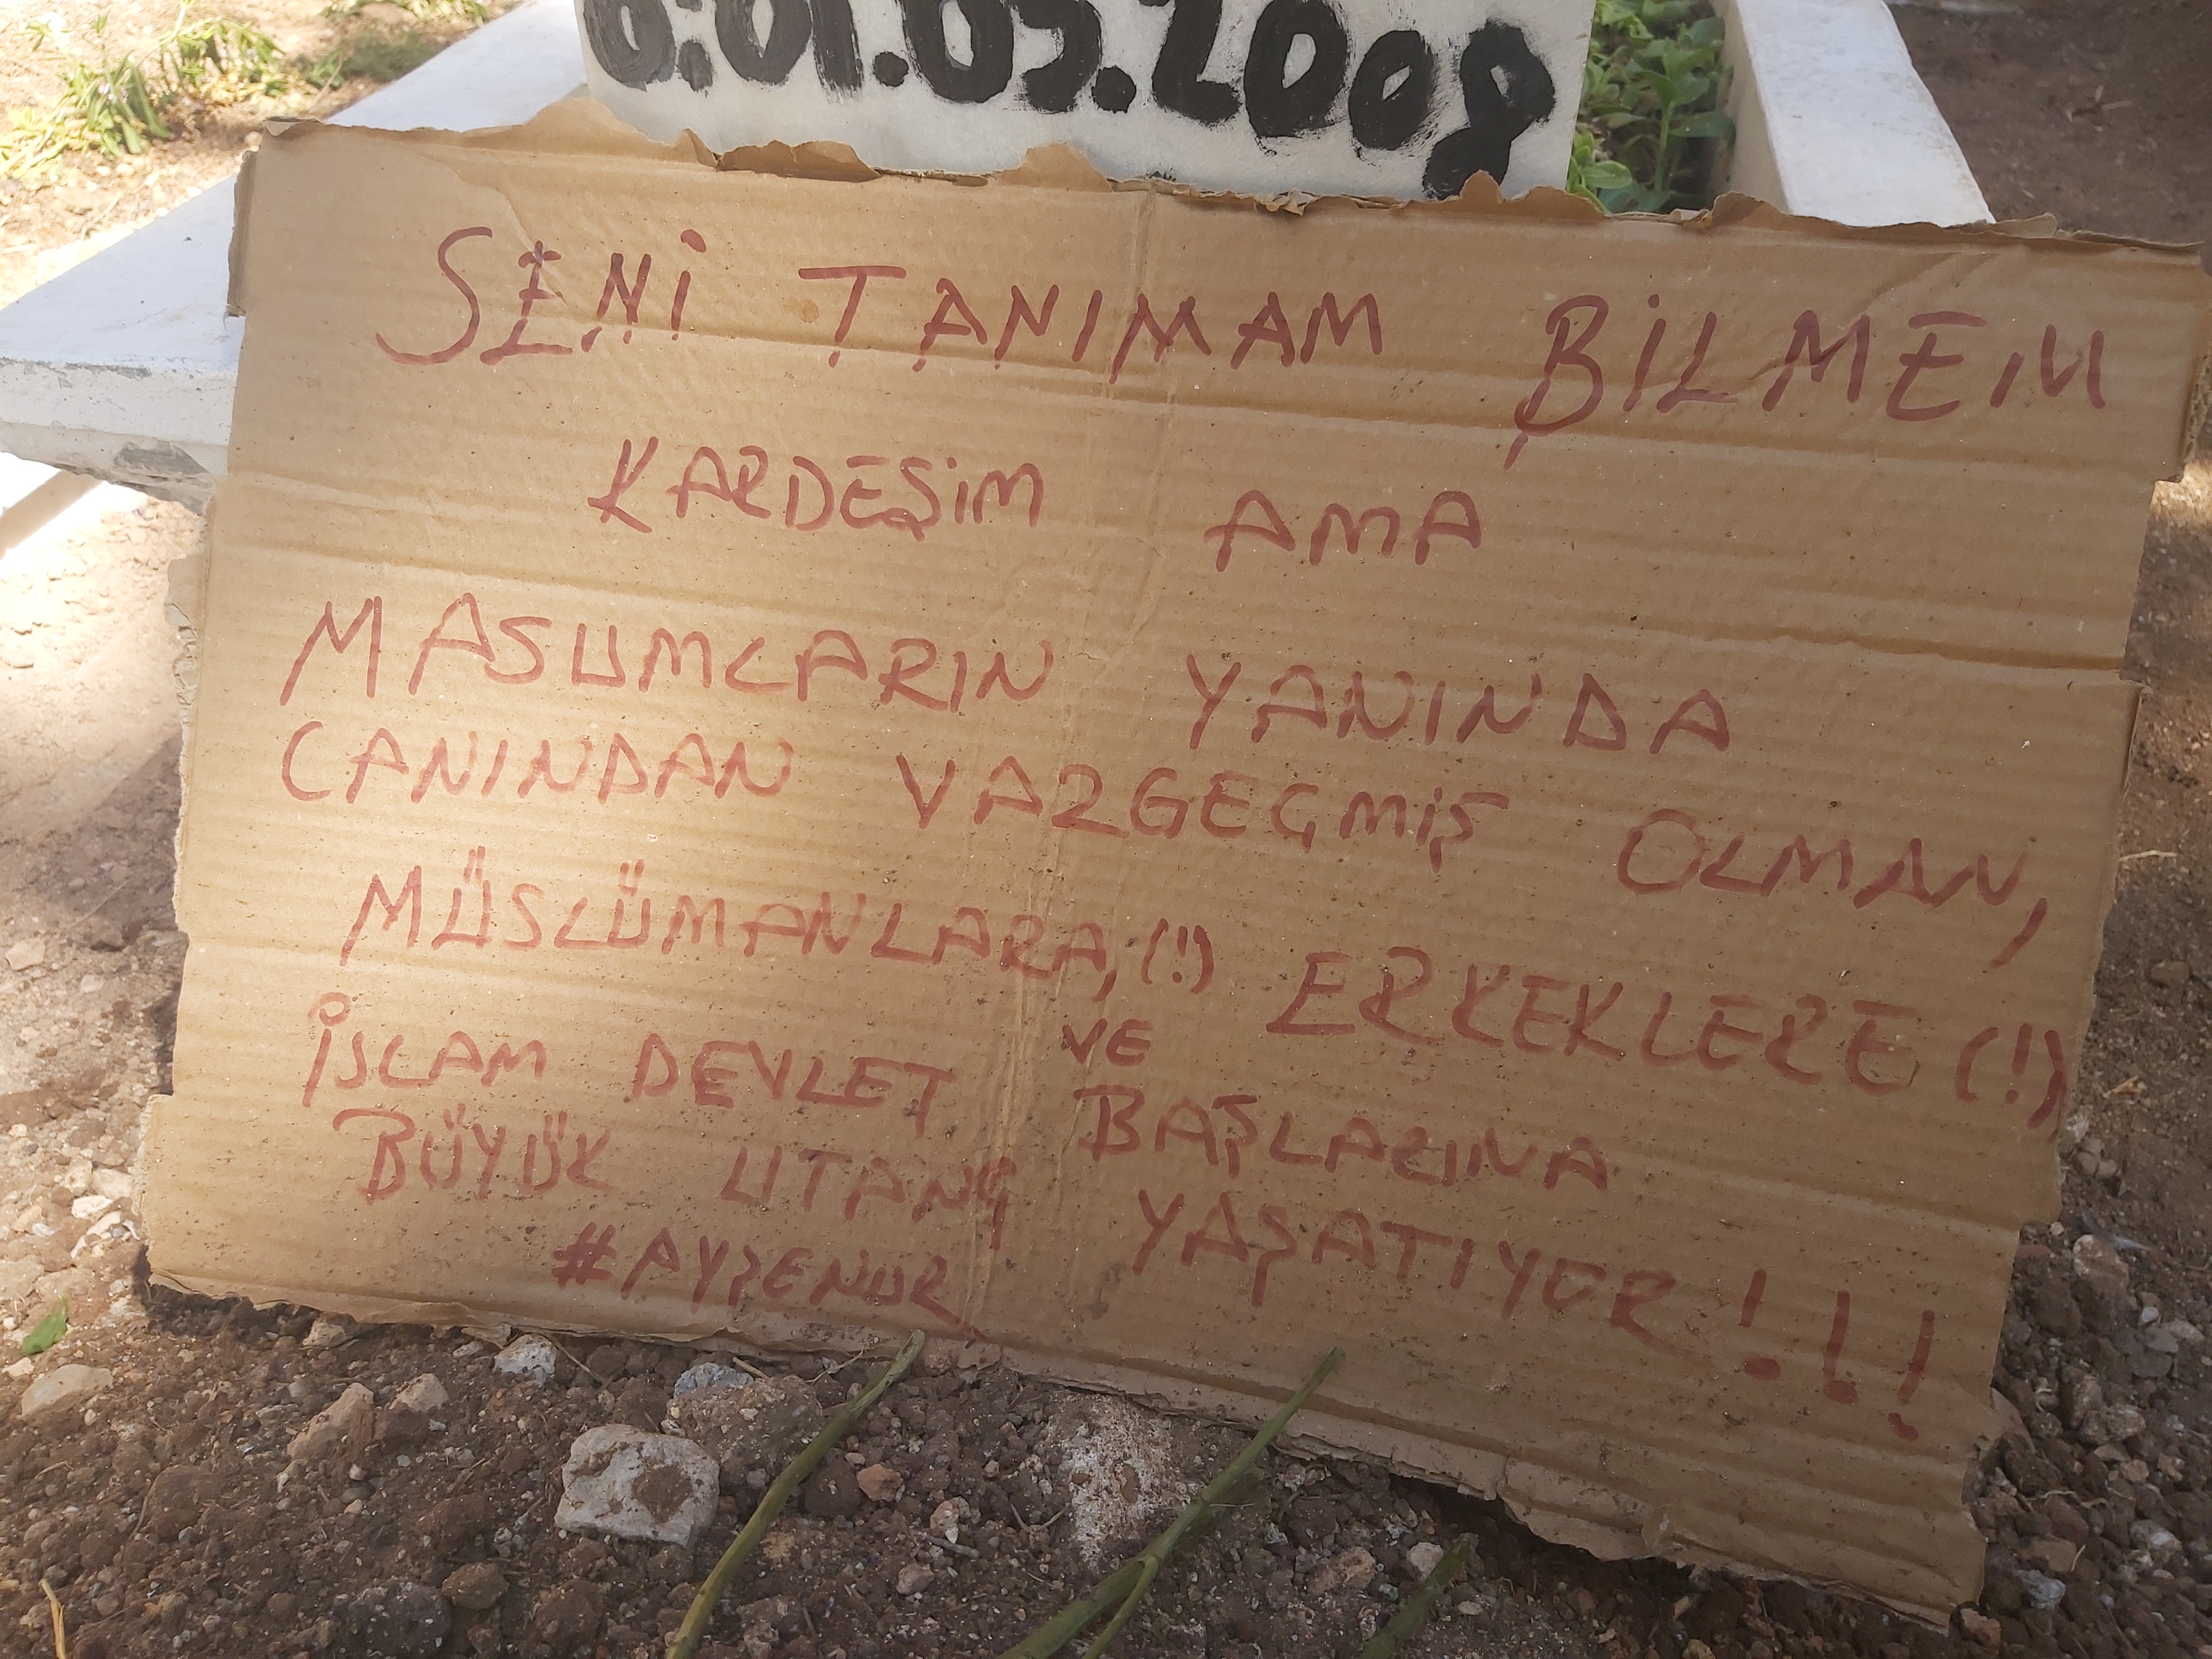 Ö:01.05.2008
SENİ TANIMAM BİLMEM
KARDEŞİM AMA
MASUMLARIN YANINDA
CANINDAN VAZGEÇMİŞ OLMAN,
MÜSLÜMANLARA,(!) ERKEKLERE(!)
VE
İSLAM DEVLET BAŞLARINA
BÜYÜK UTANÇ YAŞATIYOR!!!
#AYŞENUR